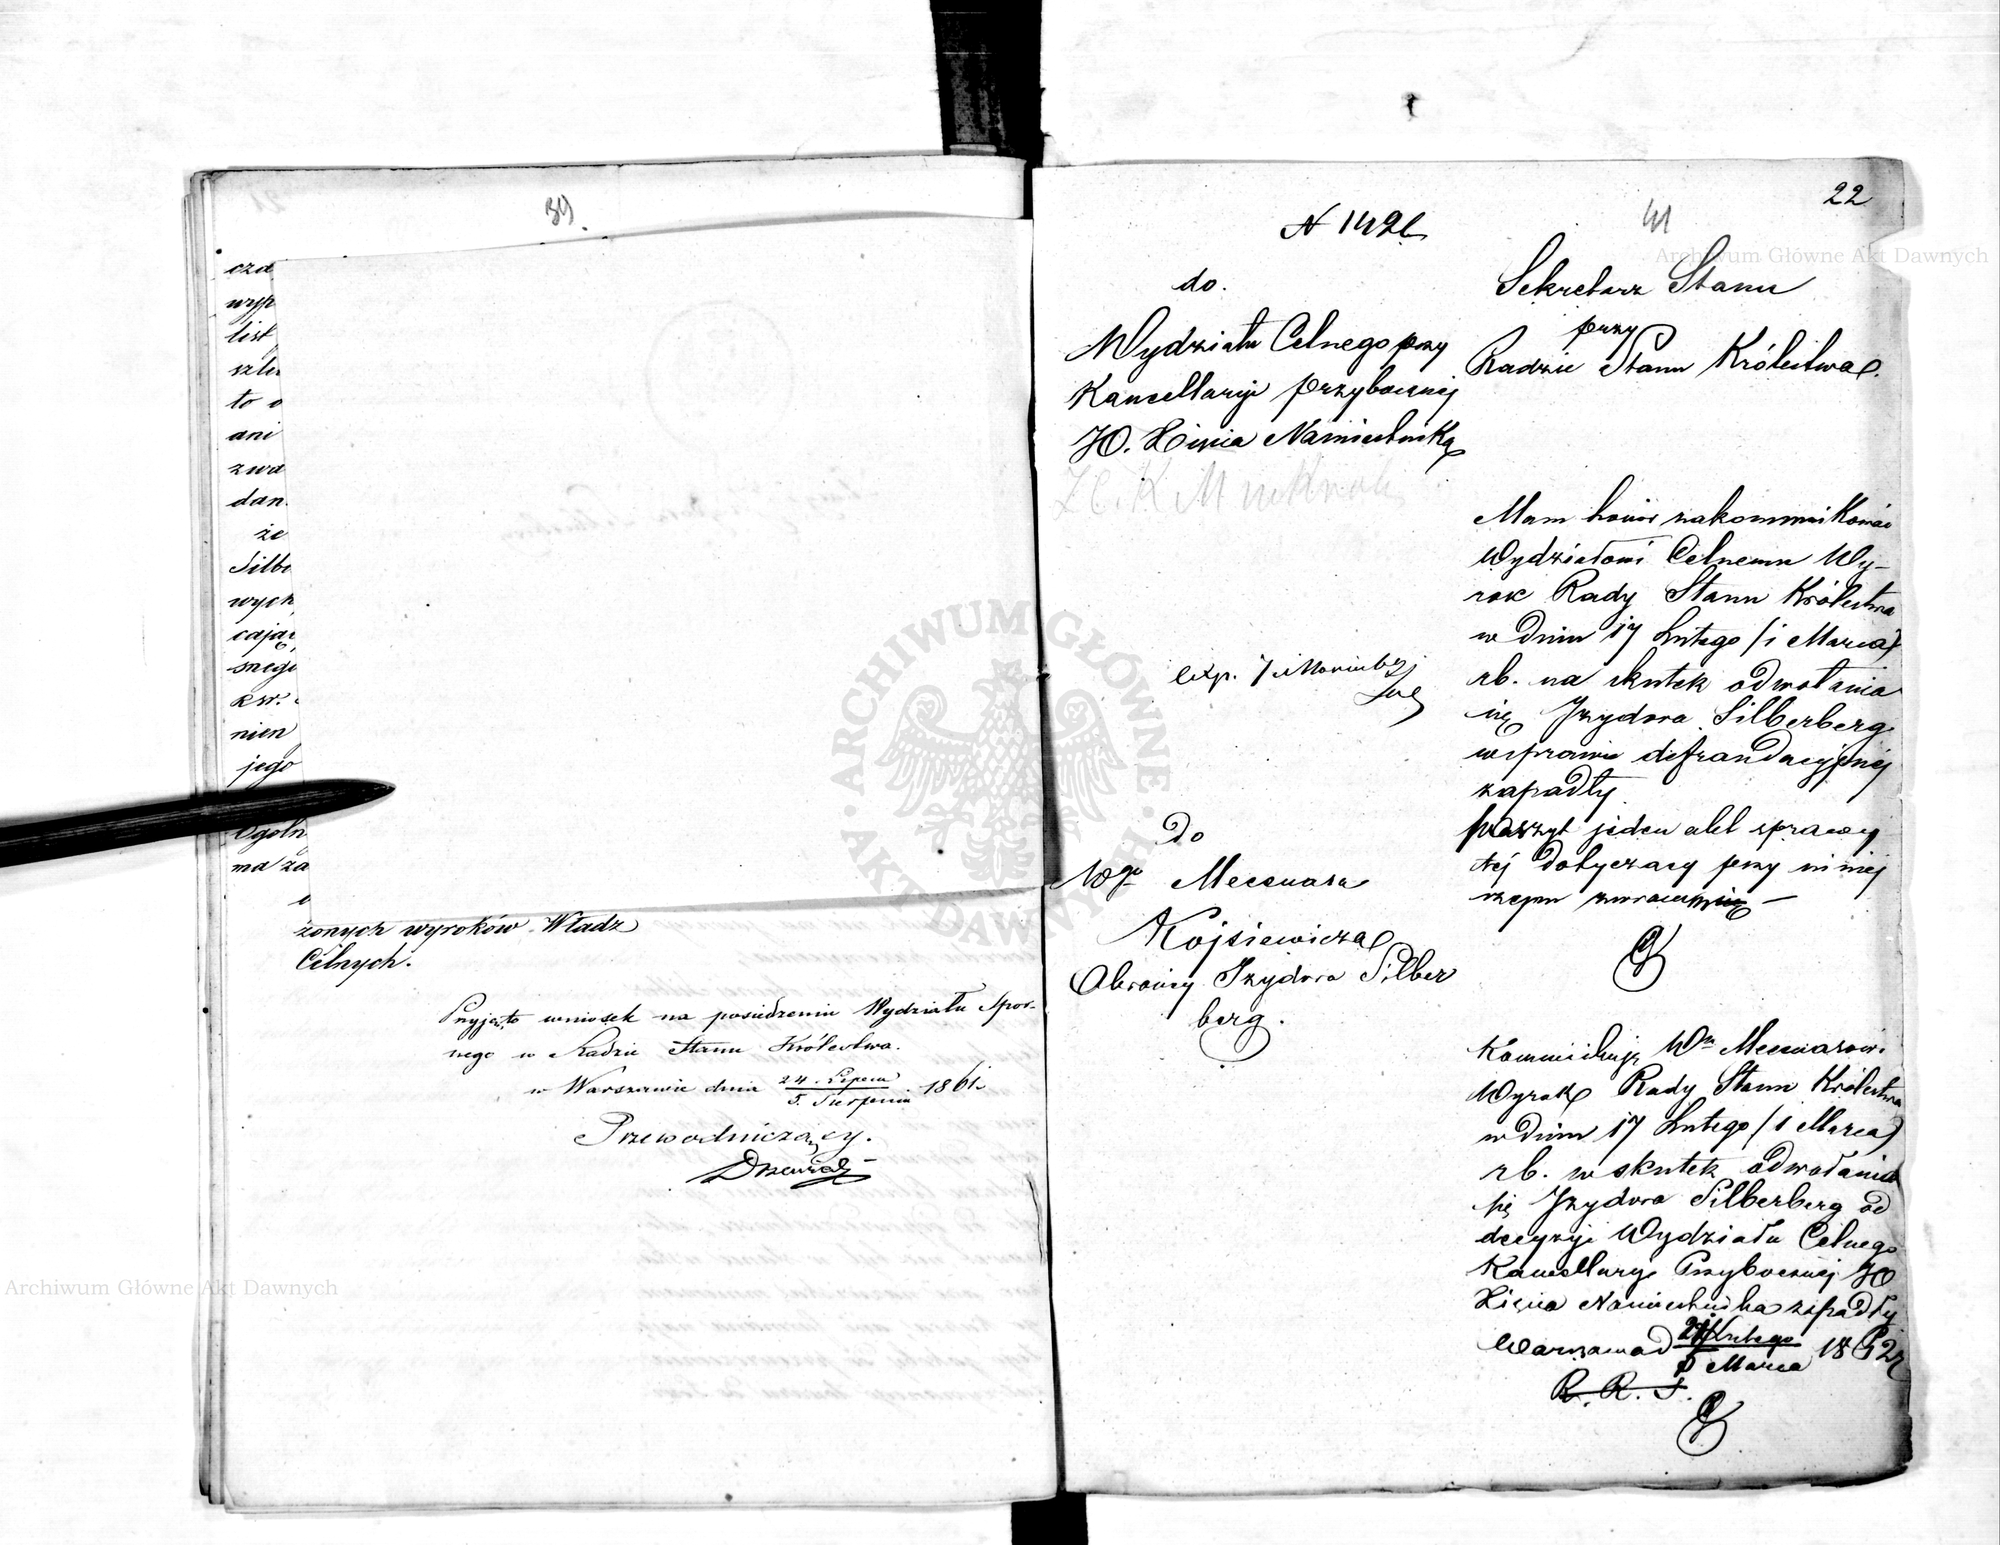 39.
cza
wyp
list
szle
to o
ani
zwa
dan.
że
Silbe
wych
cają
snego
nien
jego
Ogóln
ma za
żonych wyroków Władz
Celnych.
Przyjęto wniosek na posiedzeniu Wydziału Spor-
nego w Radzie Stanu Królestwa.
w Warszawie dnia 24. Lipca / 5. Sierpnia 1861.
Przewodniczący.
22
41
N 1492
do.
Wydziału Celnego przy
Kancellaryi przybocznej
JO. Xięcia Namiestnika
exp. 7 Marca
Do
Wgo Mecenasa
Kojsiewicza
Obrońcy Izydora Silber
berg.
Sekretarz Stanu
przy
Radzie Stanu Królestwa.
Mam honor zakommunikować
Wydziałowi Celnemu Wy-
rok Rady Stanu Królestwa
w dniu 17 Lutego / 1 Marca /
rb. na skutek odwołania
się Izydora Silberberg
w sprawie defraudacyjnej
zapadły.
poszyt jeden akt sprawy
tej dotyczący przy niniej
szym zwracając —
Kommunikuję Wmu Mecenasowi
Wyrok Rady Stanu Królestwa
w dniu 17 Lutego / 1 Marca /
rb. w skutek odwołania
się Izydora Silberberg od
decyzyi Wydziału Celnego
Kancellaryi Przybocznej JO
Xięcia Namiestnika zapadły
Warszawa d Lutego / Marca 1862 r
R. R. S.
Archiwum Główne Akt Dawnych
ARCHIWUM GŁÓWNE AKT DAWNYCH
Archiwum Główne Akt Dawnych